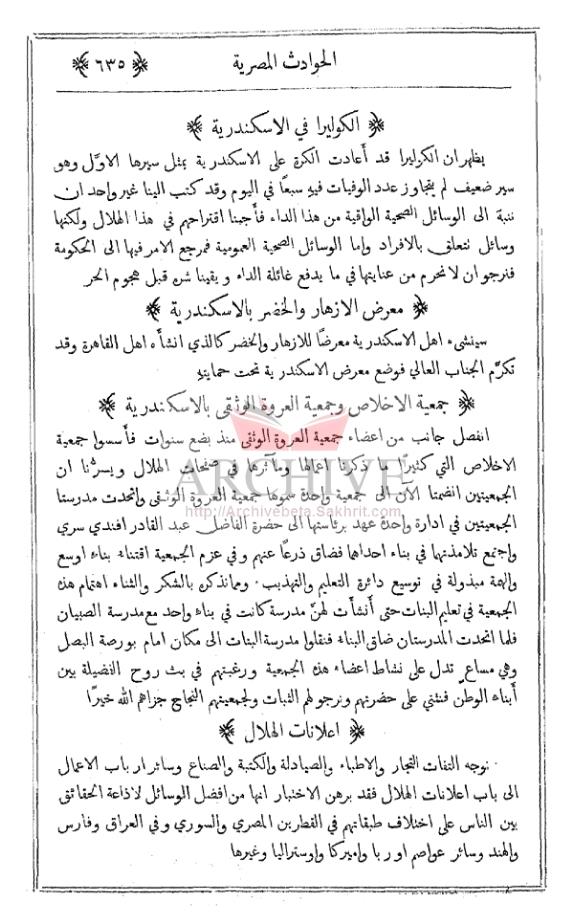 الحوادث المصرية
﴿ ٦٣٥ ﴾
﴿ الكوليرا في الاسكندرية ﴾
يظهر ان الكوليرا قد أعادت الكرة على الاسكندرية بمثل سيرها الاول وهو
سير ضعيف لم يتجاوز عدد الوفيات فيه سبعًا في اليوم وقد كتب الينا غير واحد ان
ننبه الى الوسائل الصحية الواقية من هذا الداء فأجبنا اقتراحهم في هذا الهلال ولكنها
وسائل نتعلق بالافراد واما الوسائل الصحية العمومية فمرجع الامر فيها الى الحكومة
فنرجو ان لا نحرم من عنايتها في ما يدفع غائلة الداء ويقينا شره قبل هجوم الحر
﴿ معرض الازهار والخضر بالاسكندرية ﴾
سينشىء اهل الاسكندرية معرضًا للازهار والخضر كالذي انشأه اهل القاهرة وقد
تكرّم الجناب العالي فوضع معرض الاسكندرية تحت حمايته
﴿ جمعية الاخلاص وجمعية العروة الوثقى بالاسكندرية ﴾
انفصل جانب من اعضاء جمعية العروة الوثقى منذ بضع سنوات فأسسوا جمعية
الاخلاص التي كثيرًا ما ذكرنا اعمالها ومآثرها في صفحات الهلال ويسرّنا ان
الجمعيتين انضمتا الآن الى جمعية واحدة سموها جمعية العروة الوثقى واتحدت مدرستا
الجمعيتين في ادارة واحدة عهد برئاستها الى حضرة الفاضل عبد القادر افندي سري
واجتمع تلامذتها في بناء احداهما فضاق ذرعًا عنهم وفي عزم الجمعية اقتناء بناء اوسع
والهمة مبذولة في توسيع دائرة التعليم والتهذيب . ومما نذكره بالشكر والثناء اهتمام هذه
الجمعية في تعليم البنات حتى أنشأت لهنّ مدرسة كانت في بناء واحد مع مدرسة الصبيان
فلما اتحدت المدرستان ضاق البناء فنقلوا مدرسة البنات الى مكان امام بورصة البصل
وهي مساعٍ تدل على نشاط اعضاء هذه الجمعية ورغبتهم في بث روح الفضيلة بين
أبناء الوطن فنثني على حضرتهم ونرجو لهم الثبات ولجمعيتهم النجاح جزاهم الله خيرًا
﴿ اعلانات الهلال ﴾
نوجه التفات التجار والاطباء والصيادلة والكتبة والصناع وسائر ارباب الاعمال
الى باب اعلانات الهلال فقد برهن الاختبار انها من افضل الوسائل لاذاعة الحقائق
بين الناس على اختلاف طبقاتهم في القطرين المصري والسوري وفي العراق وفارس
والهند وسائر عواصم اوربا واميركا واوستراليا وغيرها
ARCHIVE
http://Archivebeta.Sakhrit.com